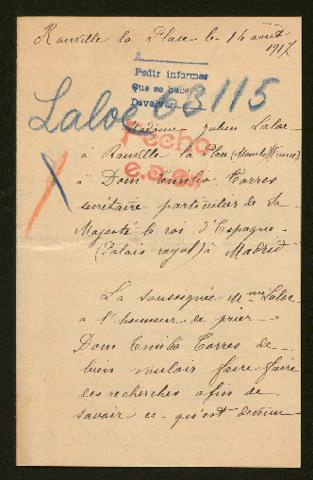 Rauville la Place le 14 avril
1917
A
Pedir informes
Que se hace
Devolver
Laloë 63115
Madame Julien Laloë
Fecho
à Rauville la Place (Manche) (France)
e.a.c.
à Dom Emilio Torres
secrétaire particulier de Sa
Majesté le roi d'Espagne
(Palais royal) à Madrid
La soussignée Mme Laloë
a l'honneur de prier
Dom Emilio Torres de
bien vouloir faire faire
des recherches afin de
savoir ce qu'est devenu